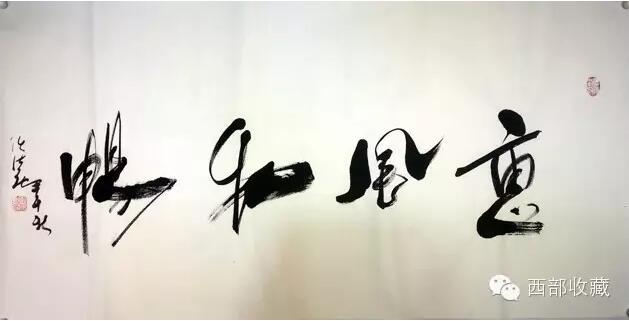 惠風和暢
西部收藏